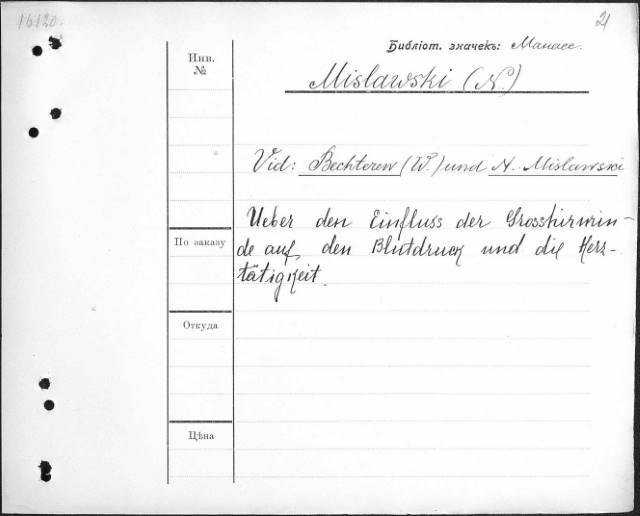 16120.
21
Библіот. значекъ: Манасс.
Инв.
№
Mislawski (N.)
Vid: Bechterew (W.) und N. Mislawski
Ueber den Einfluss der Grosshirnrin-
По заказу
de auf den Blutdruck und die Herz-
tätigkeit.
Откуда
Цѣна